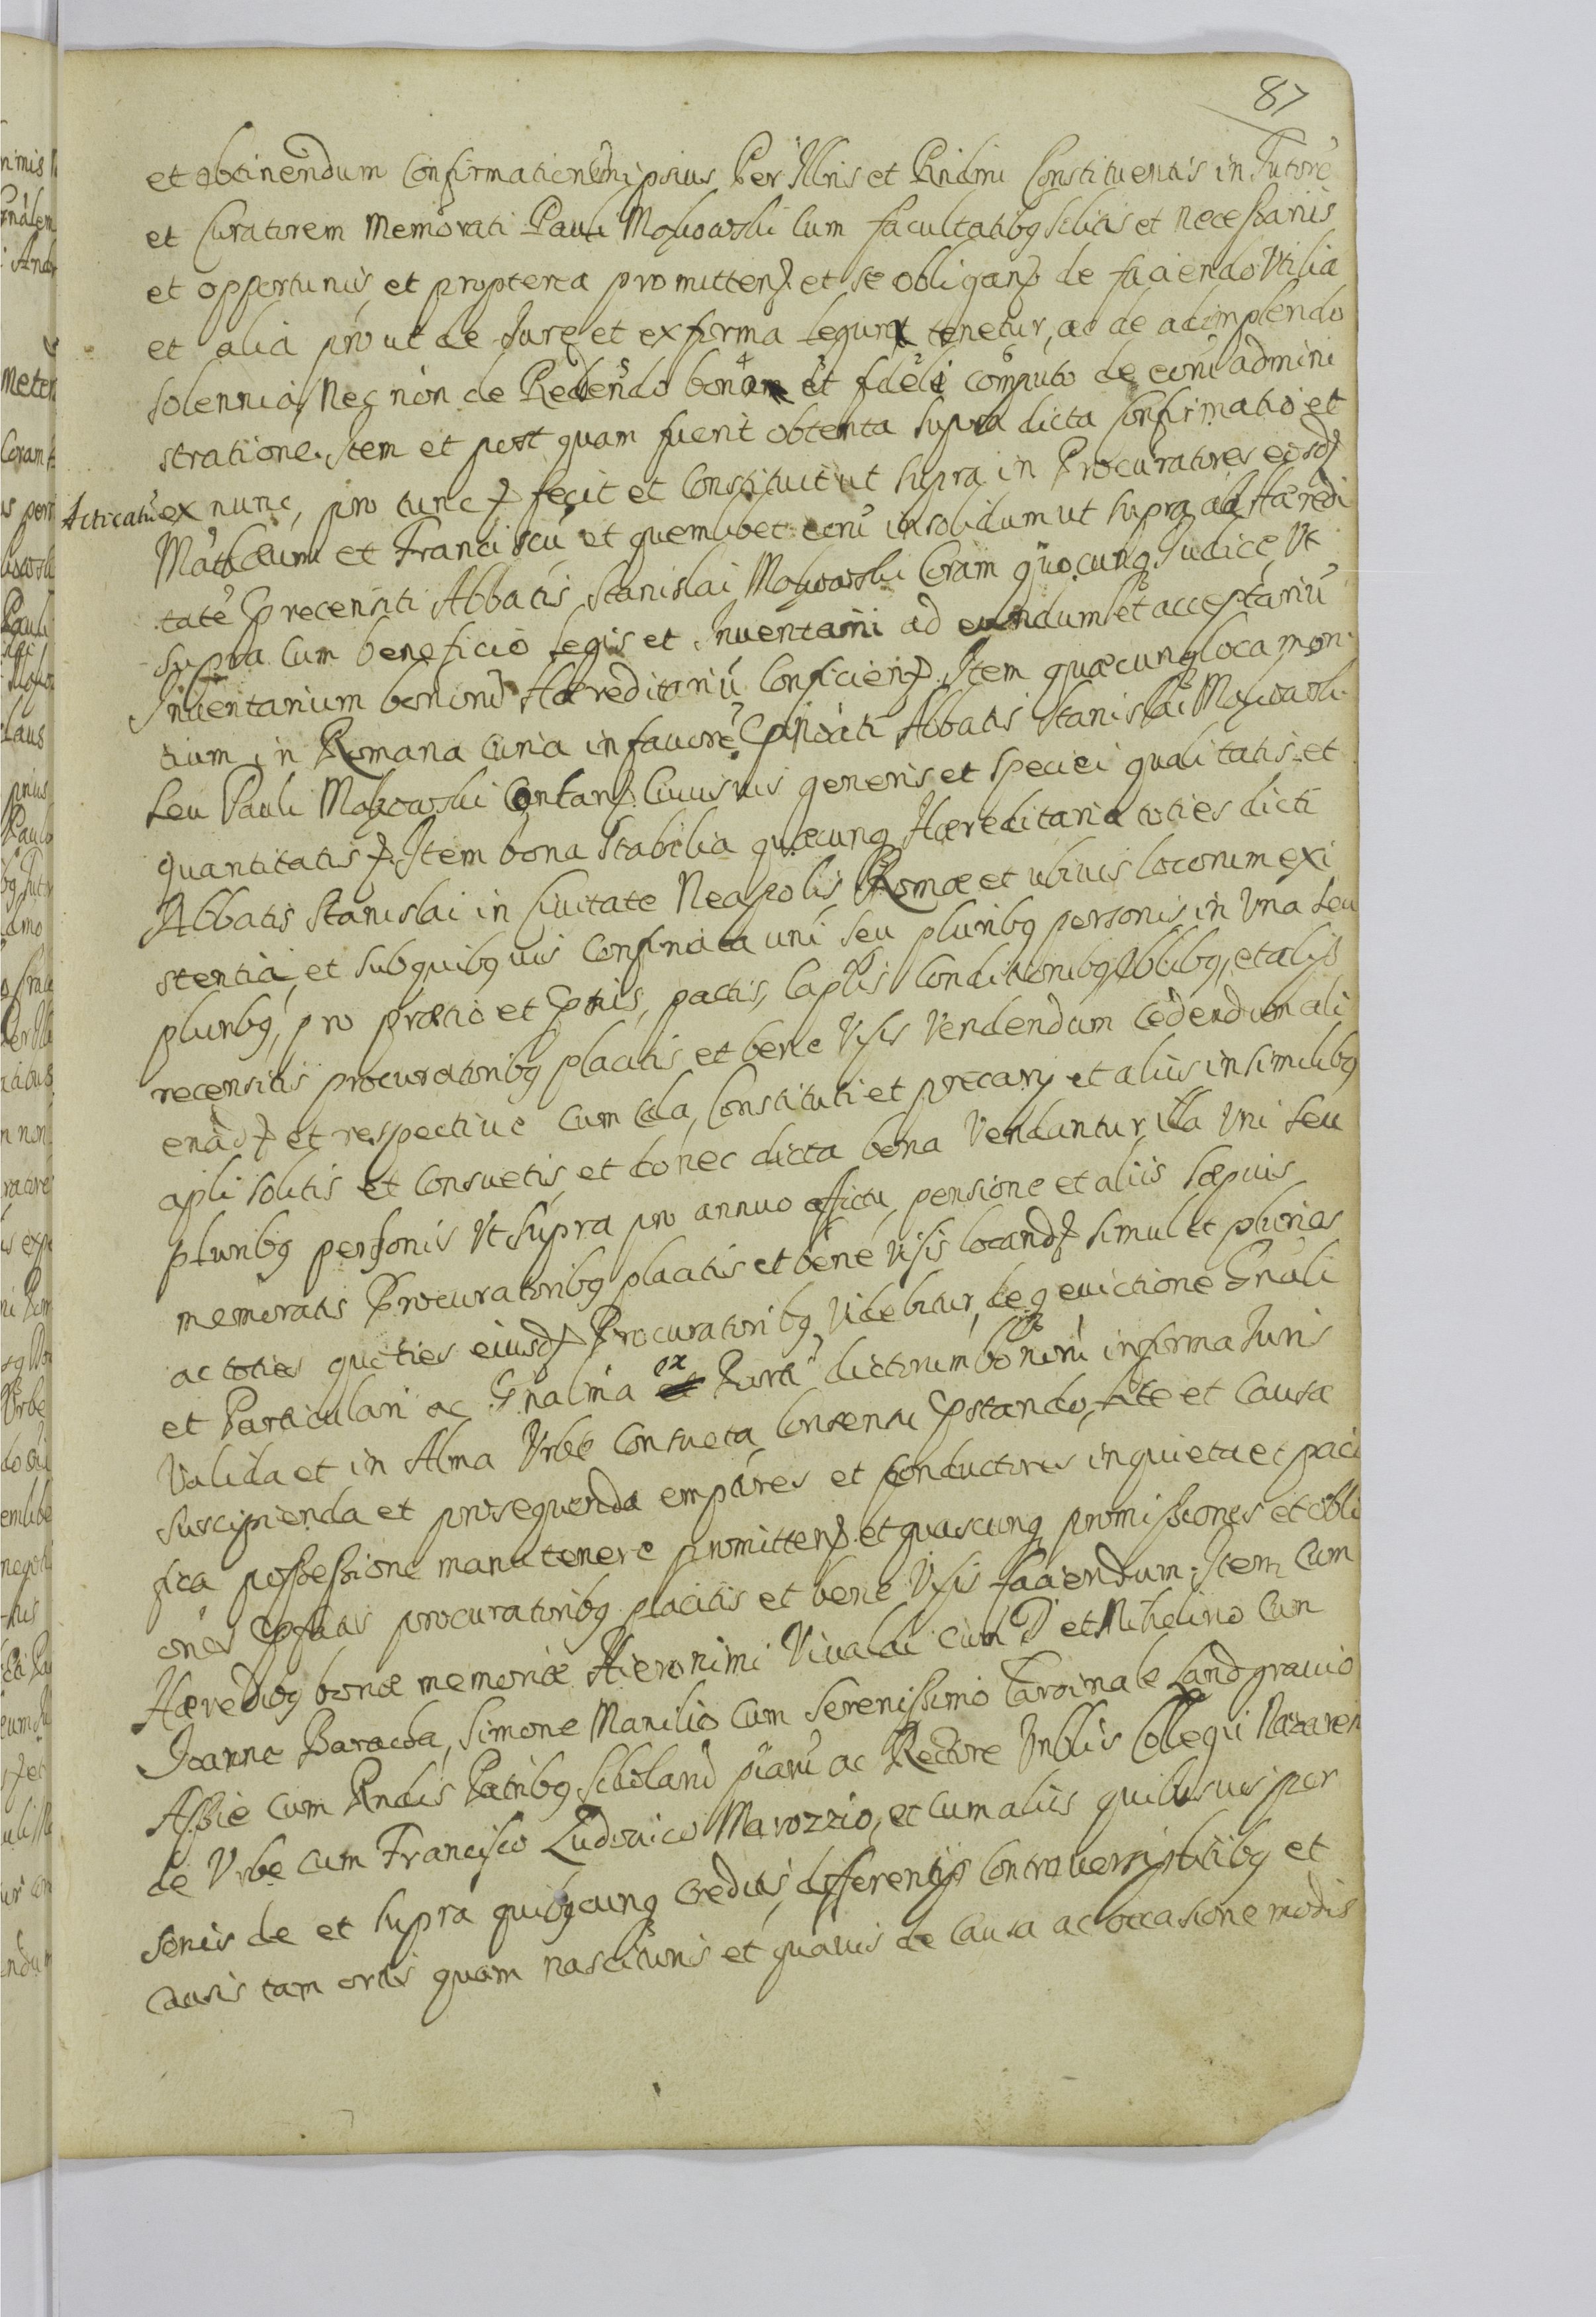 87
et obtinendum Confirmationem ipsius Per Illris et Rndmi Constituentis in Tutorē
et Curatorem Memorati Pauli Makowski Cum facultatibq; solitis et necessariis
et opportunis, et propterea promitten₎ et se obligan₎ de faciendo Vtilia
et alia pro ut de Jure et ex forma legum tenetur, ac de adimplendo
solennia, Nec non de Reddendo bono et fideli computo de eorū admini
stratione. Item et post quam fuerit obtenta supra dicta Confirmatio et
Acticatū ex nunc, pro tunc fecit et Constituit ut supra in Procuratores eosd
Matthæum et Franciscū et quemlibet eorū insolidum ut supra ad Hæredi
tatē precensiti Abbatis Stanislai Makowski Coram quocunq Judice, Vt
supra Cum beneficio legis et Inventarii ad eundum et acceptariū
Inventarium bonorū Hæreditariū Conficien₎. Item quæcunq loca mon
tium in Romana Curia in favorē pnōāti Abbatis Stanislai Makowski
seu Pauli Makowski Cantan₎ Cuiusvis generis et speciei qualitatis, et
quantitatis. Item bona Stabilia quæcunq Hæreditaria toties dicti
Abbatis Stanislai in Civitate Neapolis, Romæ et ubivis locorum exi
stentia, et sub quibq vis Confinata uni seu pluribq personis in Vna seu
pluribq, pro prætio et ptiis, pactis, Caplis Conditionibq oblibq, et aliis
recensitis procuratoribq placitis et bene Visis Vendendum Cedendum ali
enād et respective Cum Cla, Constituti et precarij et aliis in similibq
apli solitis et Consuetis, et donec dicta bona Vendantur illa Uni seu
pluribq personis Vt supra pro annuo affictu, pensione et aliis sæpius
memoratis Procuratoribq placitis et bene Visis locand simul et pluries
ac toties quoties eiusd Procuratoribq Videbitur, de q evictione Gnāli
et Particulari ac Gnalma ex Parte dictorum bonorū in forma Juris
Valida et in Alma Vrbe Consueta Consensu pstando, lite et Causa
suscipienda et prosequenda emptores et Conductores in quieta et paci
fica possessione manutenere promitten₎. et quascunq promissiones et obli
ones pfatis procuratoribq placitis et bene Visis faciendum. Item Cum
Hæredibq bonæ memoriæ Hieronimi Vivaldi Cum D et Michelino Cum
Joanne Baracda, Simone Manilio Cum Serenissimo Cardinale Landgravio
Assiæ Cum Rndis Patribq Scholarū piarū ac Rectore Vnblis Collegii Nazaren
de Vrbe Cum Francisco Ludovico Marozzio, et Cum aliis quibusvis per
sonis de et supra quibqcunq creditis, differentijs Controversijs litibq et
Causis tam ortis quam nascituris et quavis de Causa ac occasione modis